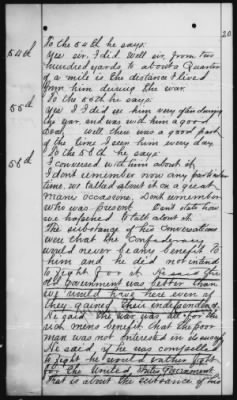 20
To the 54th he says:
54th
Yes sir, I did well sir, from two
hundred yards, to about a quarter
of a mile is the distance I lived
from him during the war.
To the 55th he says:
55th
Yes I did see him very often during
the war, and was with him a good
deal, well there was a good part
of the time I seen him every day
To the 56th he says:
56th
I conversed with him about it,
I dont remember now any particular
time, we talked about it on a great
many occasions, Dont remember
who was present. Dont state how
we happened to talk about it.
The substance of his conversations
were that the Confederacy
would never be any benefit to
him and he did not intend
to fight for it. He said the
old Government was better than
we would have here even if
they gained their independence.
He said the war was all for the
rich mens benefit that the poor
man was not interested in its success
He said if he was compelled
to fight he would rather fight
for the United States Government.
That is about the substance of his